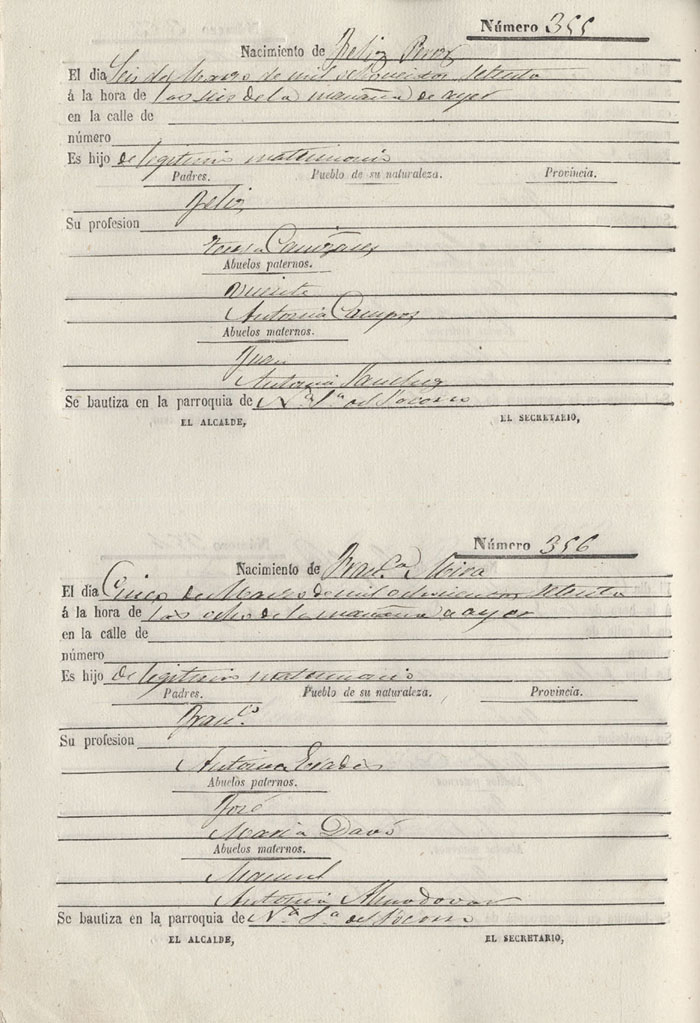 Número 355
Nacimiento de Feliz Perez
El día Seis de Marzo de mil ochocientos setenta
á la hora de las seis de la mañana de ayer
en la calle de
número
Es hijo de legitimo matrimonio
Padres. Pueblo de su naturaleza. Provincia.
Feliz
Su profesion
Teresa Cañizares
Abuelos paternos.
Vicente
Antonia Campos
Abuelos maternos.
Juan
Antonia Sanchez
Se bautiza en la parroquia de Nª Sª del Socorro
EL ALCALDE, EL SECRETARIO,
Número 356
Nacimiento de Franᶜª
El día Cinco de Marzo de mil ochocientos setenta
á la hora de las ocho de la mañana de ayer
en la calle de
número
Es hijo de legitimo matrimonio
Padres. Pueblo de su naturaleza. Provincia.
Franᶜᵒ
Su profesion
Antonia
Abuelos paternos.
José
Maria Davó
Abuelos maternos.
Manuel
Antonia Almodovar
Se bautiza en la parroquia de Nª Sª del Socorro
EL ALCALDE, EL SECRETARIO,